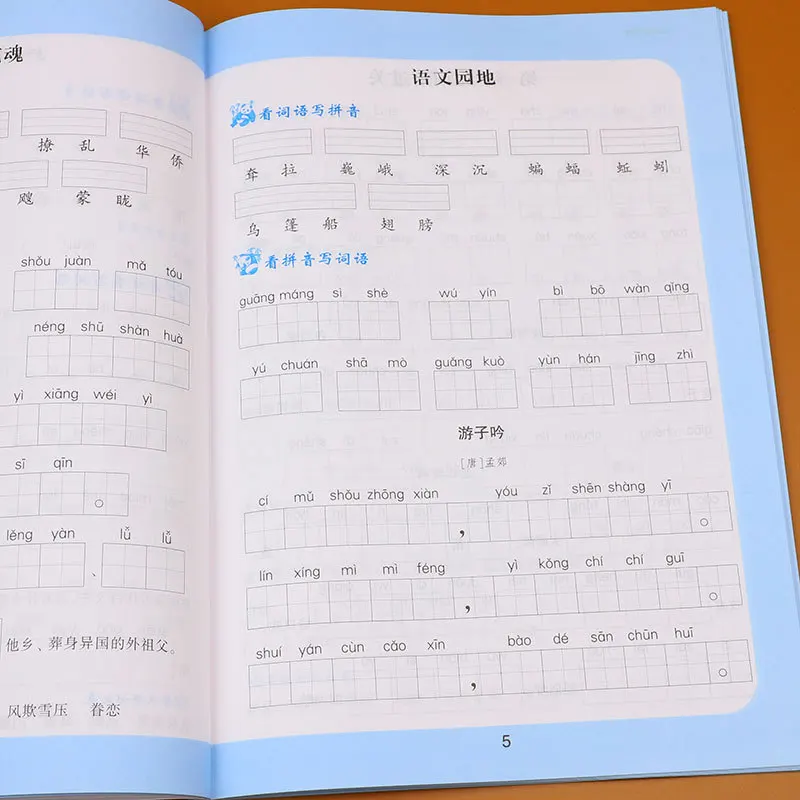 魂
撩 乱 华 侨
飕 蒙 眬
shǒu juàn mǎ tóu
néng shū shàn huà
yì xiāng wéi yì
sī qīn
。
lěng yàn lǚ lǚ
、
他乡、葬身异国的外祖父。
风欺雪压 眷恋
语文园地
看词语写拼音
耷 拉 巍 峨 深 沉 蝙 蝠 蚯 蚓
乌 篷 船 翅 膀
看拼音写词语
guāng máng sì shè wú yín bì bō wàn qǐng
yú chuán shā mò guǎng kuò yùn hán jǐng zhì
游子吟
[唐]孟郊
cí mǔ shǒu zhōng xiàn yóu zǐ shēn shàng yī
， 。
lín xíng mì mì féng yì kǒng chí chí guī
， 。
shuí yán cùn cǎo xīn bào dé sān chūn huī
， 。
5